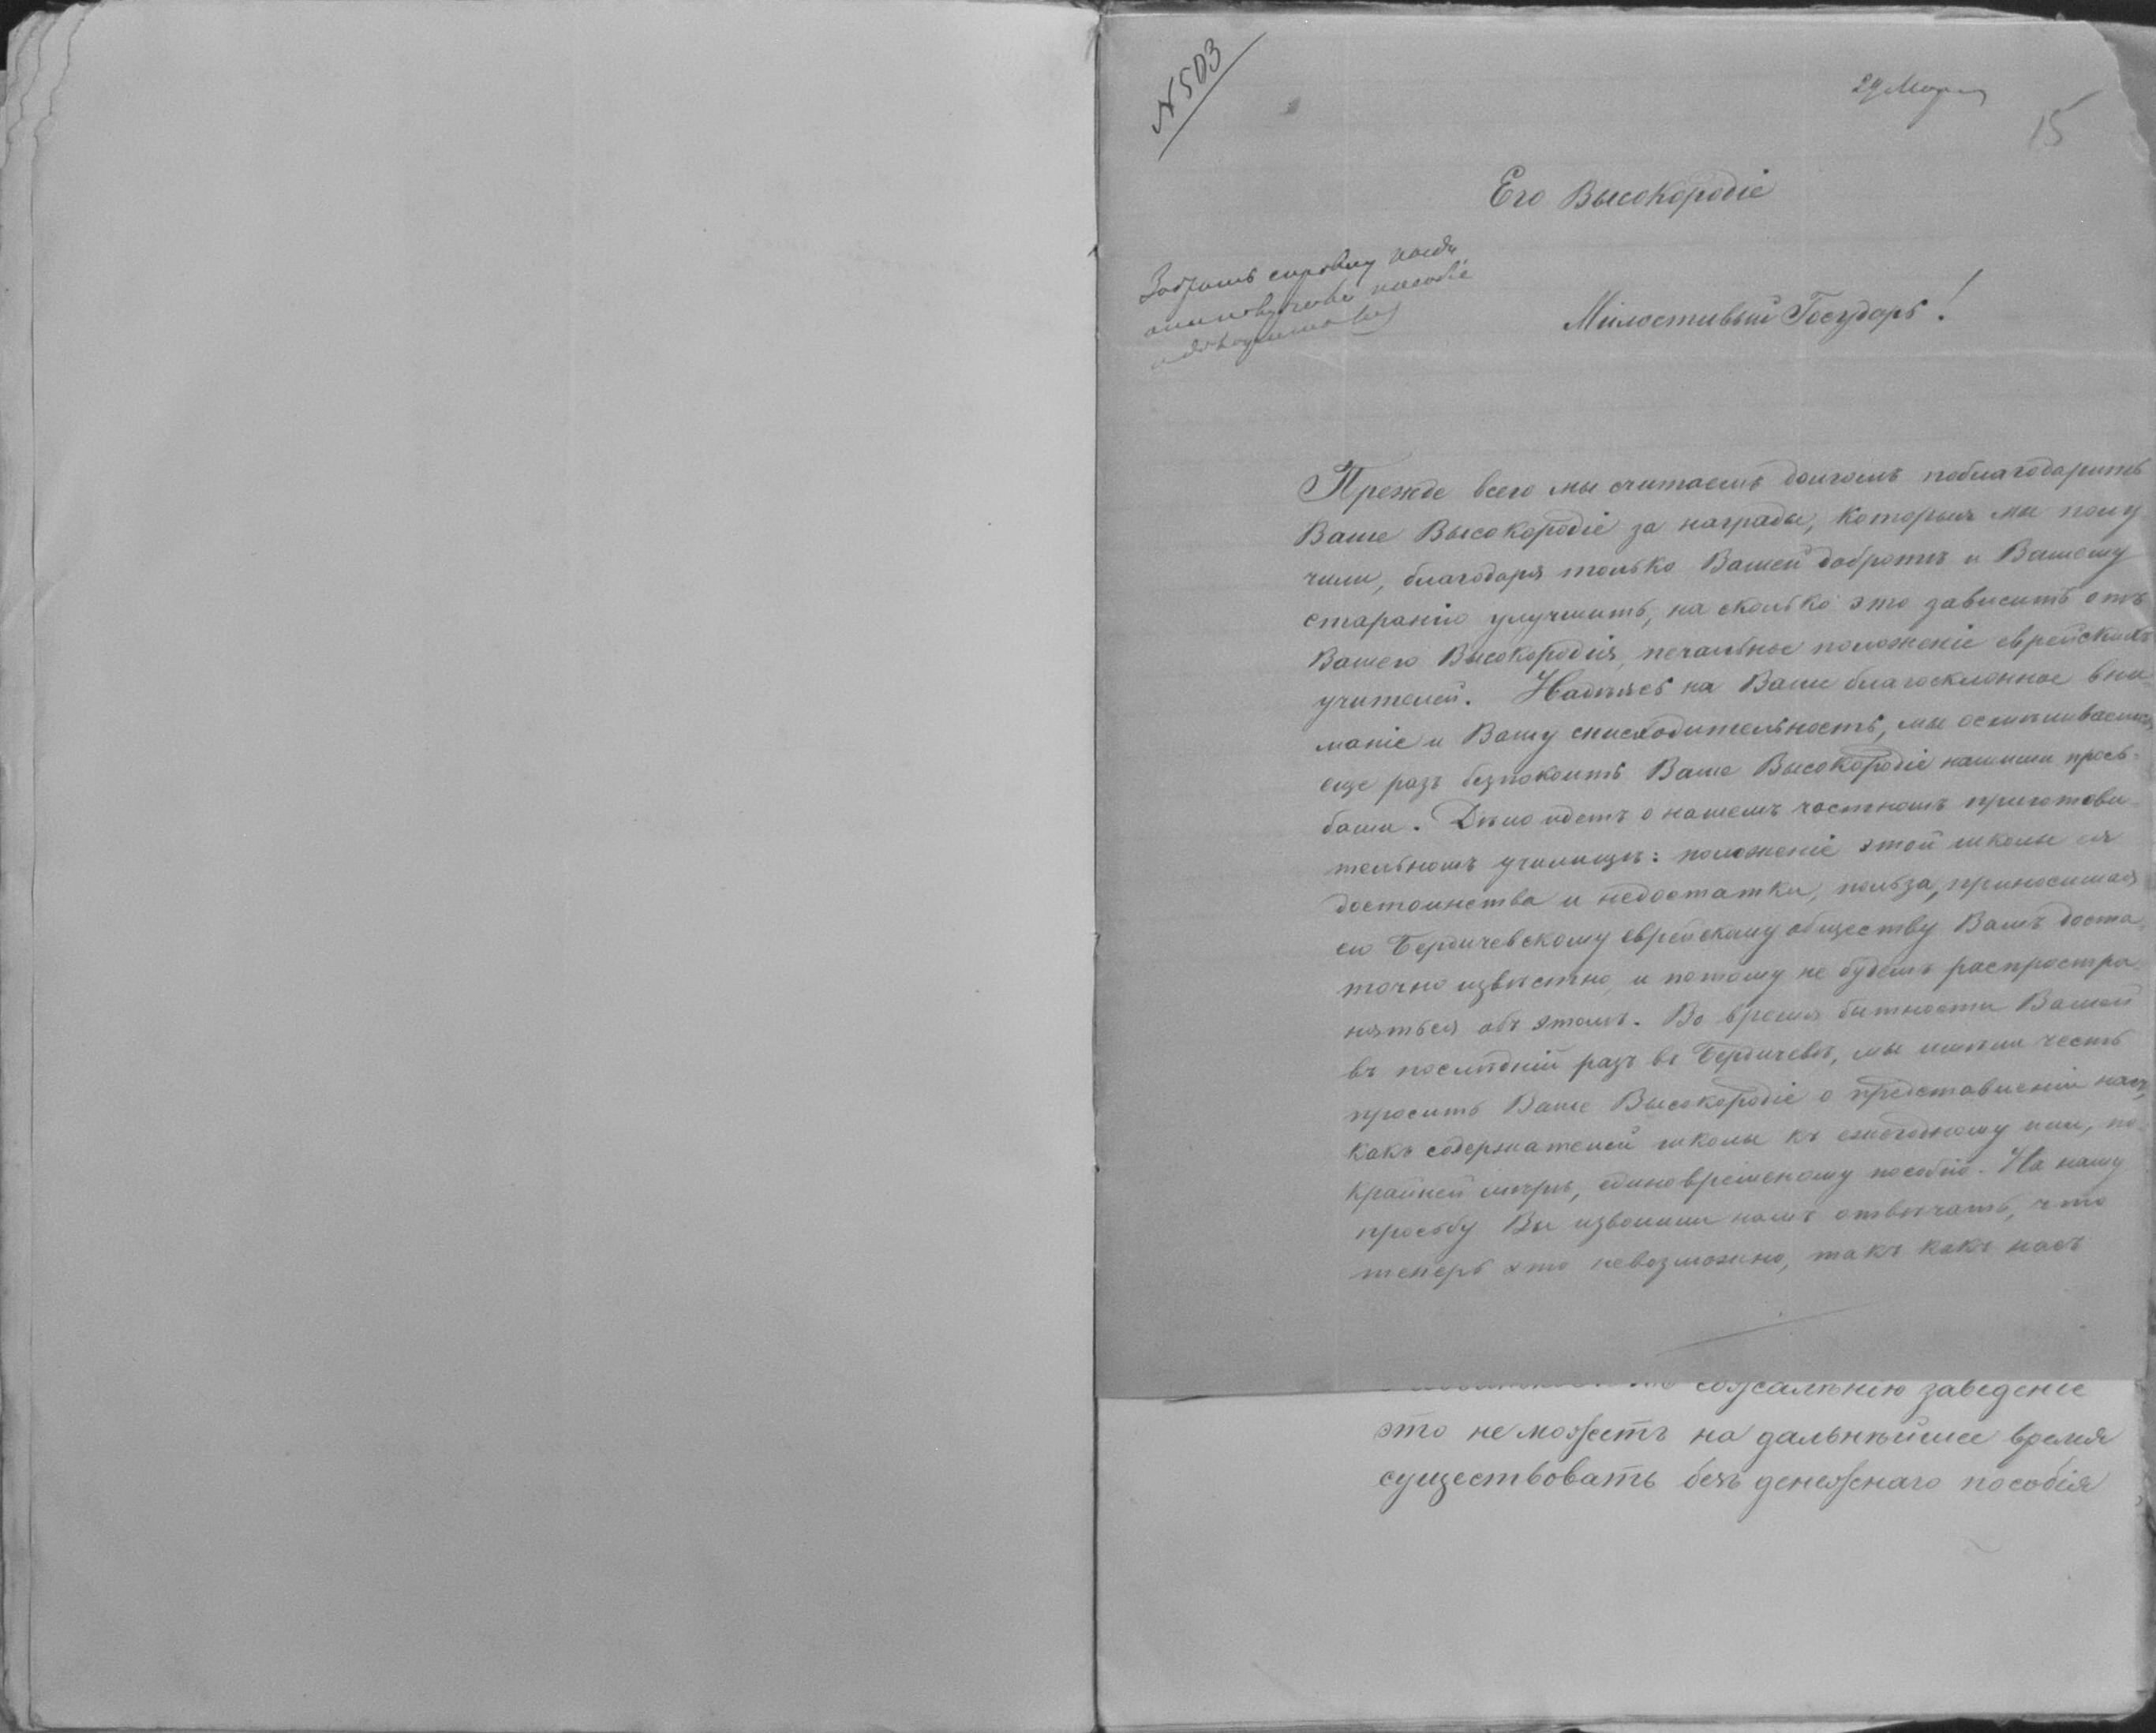 N 503
29 Мар
15
Его Высокородіе
Милостивый Государь!
Прежде всего мы считаемъ долгомъ поблагодарить
Ваше Высокородіе за награды, которыя мы полу
чили, благодаря только Вашей добротѣ и Вашему
старанію улучшить, на сколько это зависитъ отъ
Вашего Высокородія, печальное положеніе еврейскихъ
учителей. Надѣясь на Ваше благосклонное вни-
маніе и Вашу снисходительность, мы осмѣливаемся
еще разъ безпокоить Ваше Высокородіе нашими прось-
бами. Дѣло идетъ о нашемъ частномъ приготови-
тельномъ училищѣ: положеніе этой школы ея
достоинства и недостатки, польза, приносимая
ею Бердичевскому еврейскому обществу Вамъ доста-
точно извѣстно, и потому не будемъ распростра-
няться объ этомъ. Во время бытности Вашей
въ послѣдній разъ въ Бердичевѣ, мы имѣли честь
просить Ваше Высокородіе о представленіи насъ,
какъ содержателей школы къ ежегодному или, по-
крайней мѣрѣ, единовременому пособію. На нашу
просьбу Вы изволили намъ отвѣчать, что
теперь это невозможно, такъ какъ насъ
сожалѣнію заведеніе
это не можетъ на дальнѣйшее время
существовать безъ денежнаго пособія